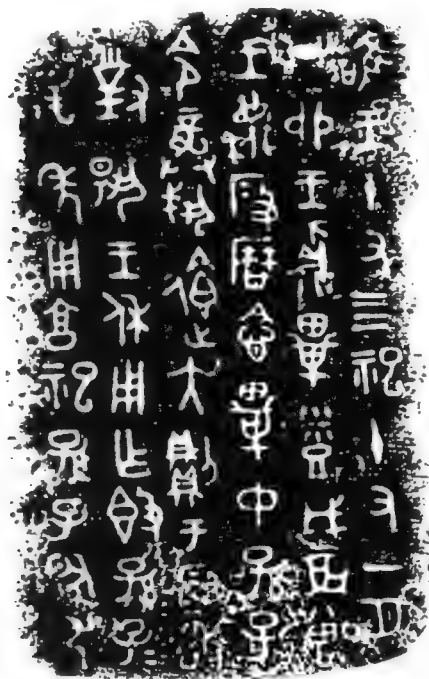 唯王十又四祀十又一月
丁卯王鼒畢登戊辰曾
王蔑段曆念畢中孫子
令龏饋大則于段敢
對揚王休用乍簋孫孫子子
萬年用享祀孫子引